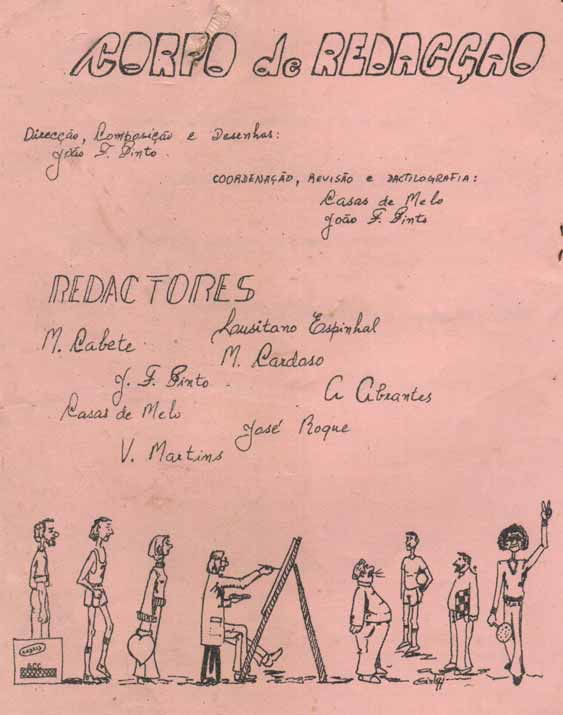 CORPO de REDACÇÃO
Direcção, Composição e Desenhos:
João F. Pinto.
COORDENAÇÃO, REVISÃO e DACTILOGRAFIA:
Casas de Melo
João F. Pinto
REDACTORES
M. Cabete
Lusitano Espinhal
M. Cardoso
J. F. Pinto.
A Abrantes
Casas de Melo
José Roque
V. Martins